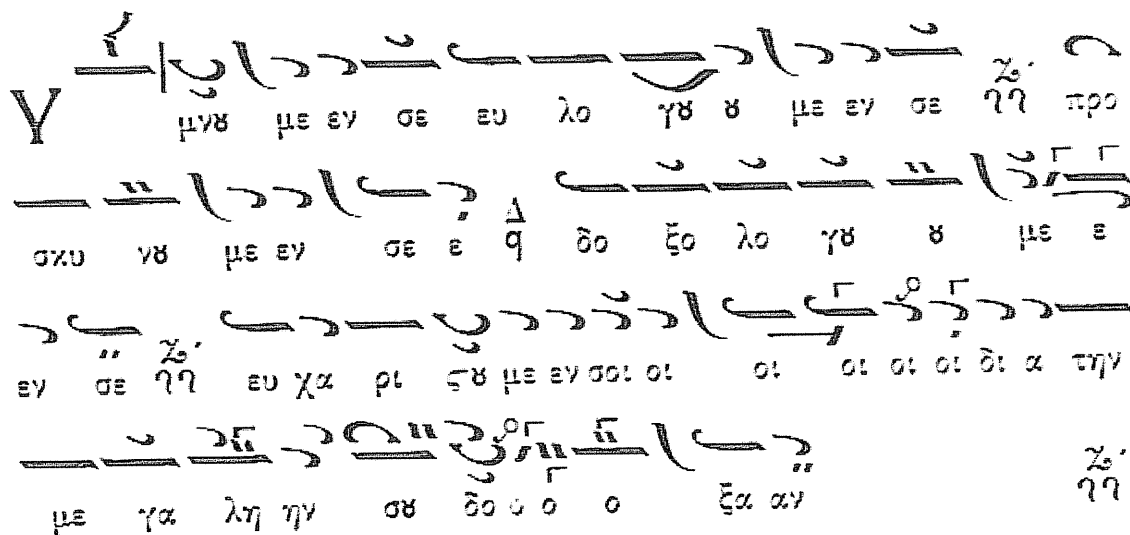 Υ μνȣ με εν σε ευ λο γȣ ȣ με εν σε προ
σκυ νȣ με εν σε ε δο ξο λο γȣ ȣ με ε
εν σε ευ χα ρι ϛȣ με εν σοι οι οι οι οι οι δι α την
με γα λη ην σȣ δο ο ο ο ξα αν